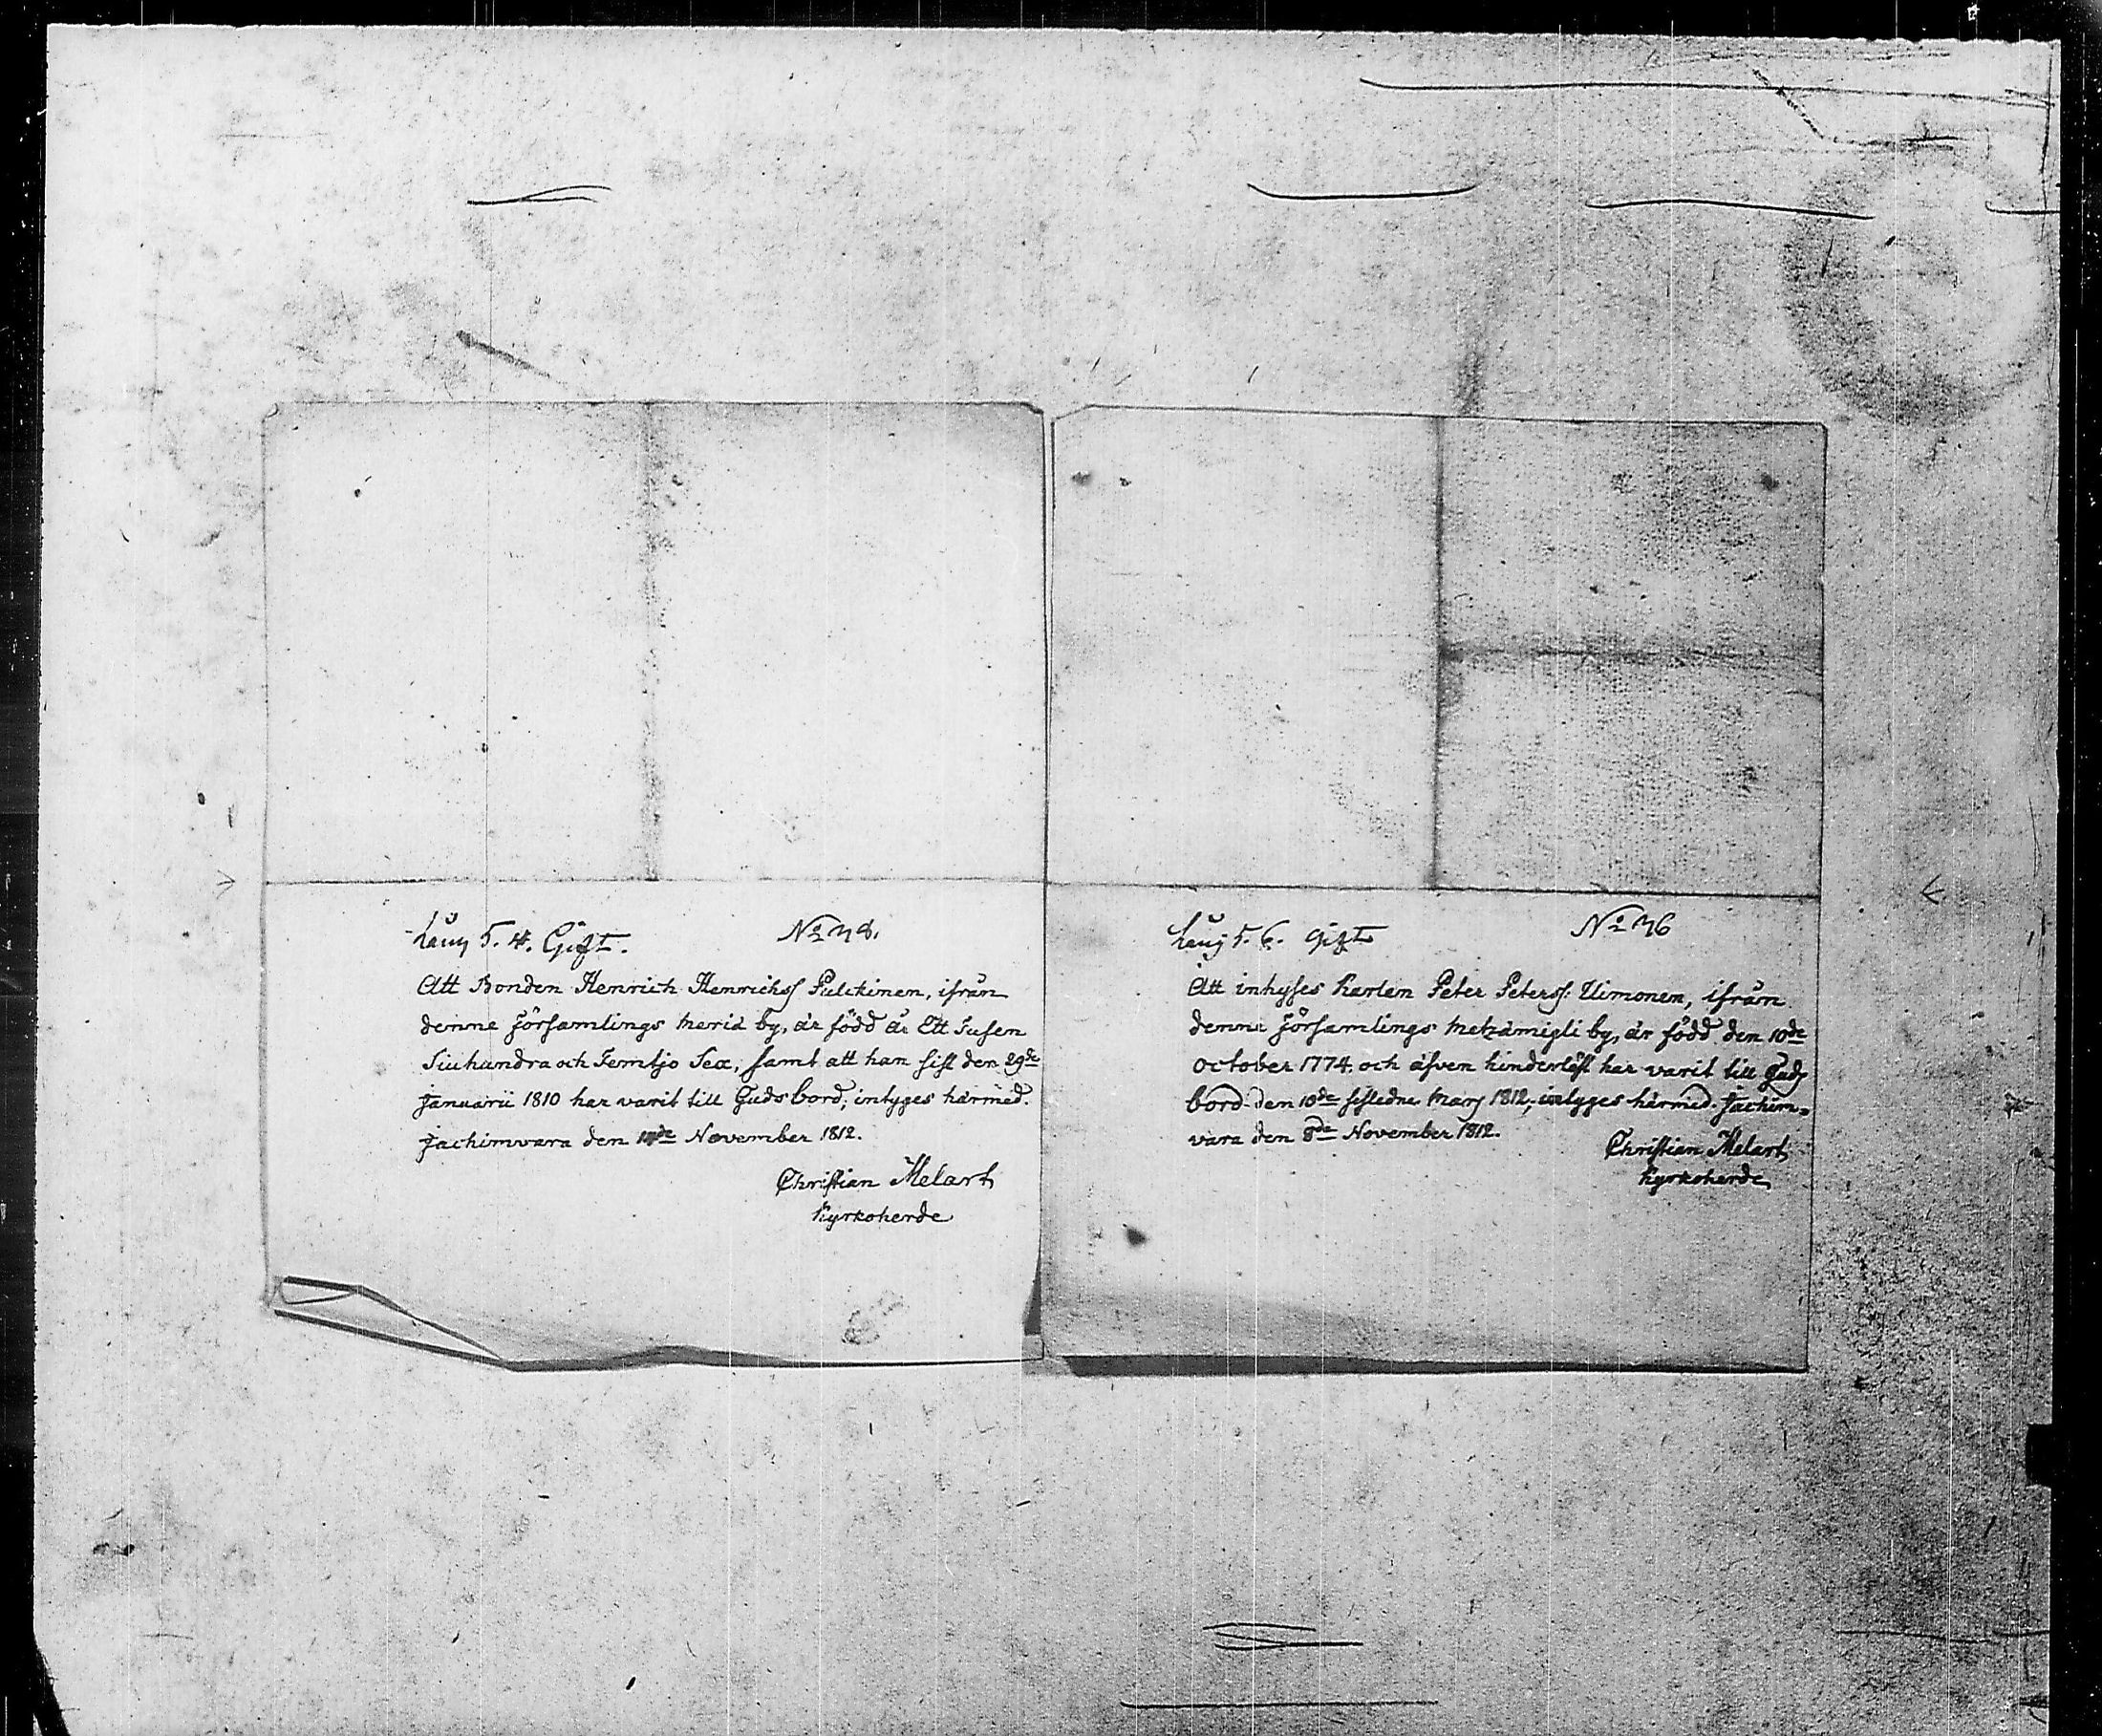 Lång 5. 4. Gift. No 78.
Att Bonden Henrich Henrichss Pulckinen, ifrån
denne församlings Meriä by, är född år Ett Tusen
Siuhundra och Femtjo Sex, samt att han sist den 29de
Januarii 1810 har varit till Guds bord; intyges härmed.
Jachimvara den November 1812.
Christian Melart
Kyrkoherde
Lång 5. 6. Gift No 76
Att inhyses Karlen Peter Peterss: Uimonen, ifrån
denne församlings Metzämigli by, är född den 10de
October 1774. och äfven hinderlöst har varit till Guds
bord den 10de sistledne Mars 1812; intyges härmed. Jachim=
vara den 8de November 1812.
Christian Melart
Kyrkoherde